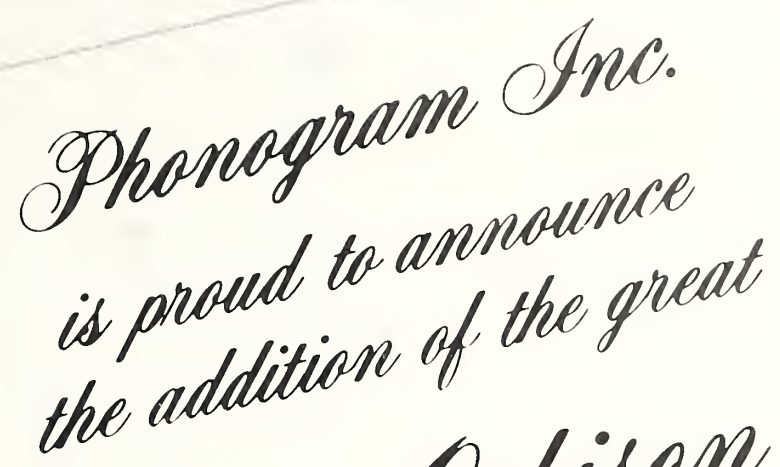 Phonogram Inc.
is proud to announce
the addition of the great